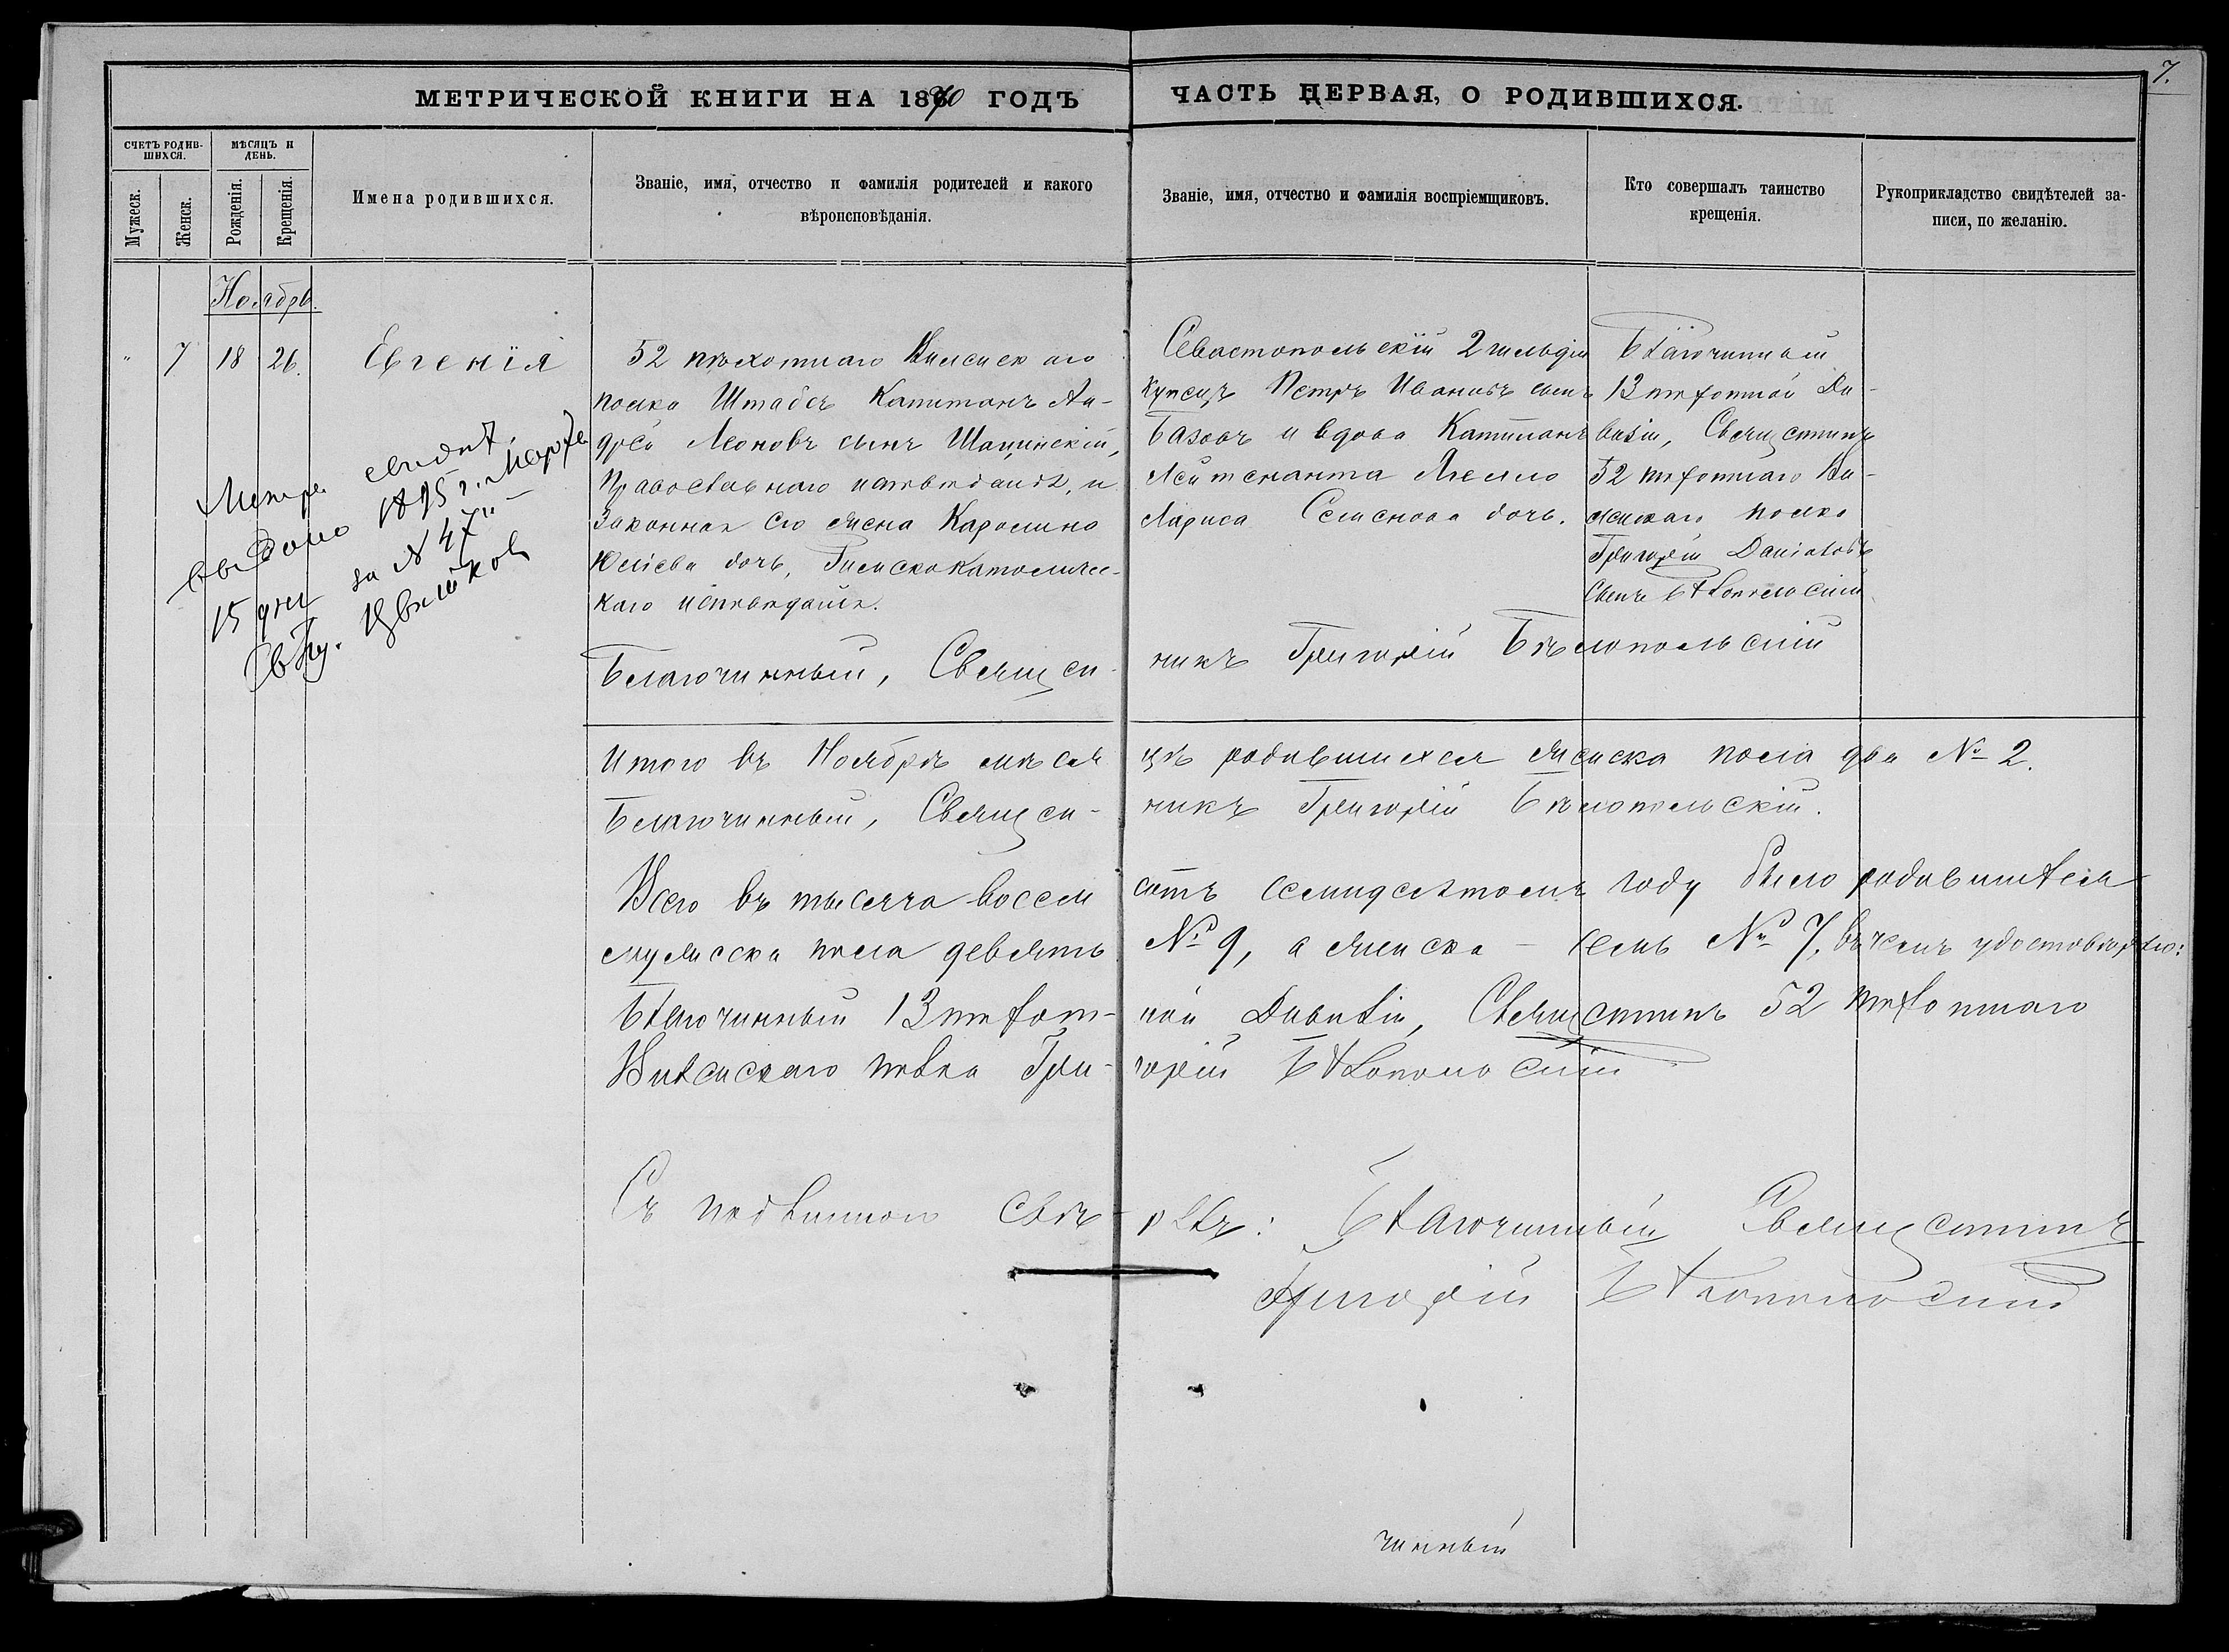 7.
МЕТРИЧЕСКОЙ КНИГИ НА 1870 ГОДЪ
ЧАСТЬ ПЕРВАЯ, О РОДИВШИХСЯ.
СЧЕТЪ РОДИВ-
ШИХСЯ.
МѢСЯЦЪ И
ДЕНЬ.
Мужеск.
Женск.
Рожденія.
Крещенія.
Имена родившихся.
Званіе, имя, отчество и фамилія родителей и какого
вѣроисповѣданія.
Званіе, имя, отчество и фамилія воспріемщиковъ.
Кто совершалъ таинство
крещенія.
Рукоприкладство свидѣтелей за-
писи, по желанію.
Ноябрь.
" 7 18 26. Евгенія
52 пѣхотнаго Виленскаго
полка Штабсъ Капитанъ Ан-
дрей Леоновъ сынъ
Православнаго исповѣданія, и
Законная его жена Каролина
Юліева дочь, Римскокатоличес-
каго исповѣданія.
Севастопольскій 2 гильдіи
Купецъ Петръ Ивановъ сынъ
и вдова Капитанъ
Лейтенанта
Лариса Семенова дочь.
Благочинный
13 пѣхотной Ди-
визіи, Священникъ
52 пѣхотнаго Ви-
ленскаго полка
Григорій Даніиловъ
Сынъ Бѣлопольскій
Метри. свидѣт.
выдано 1895 г. Марта
15 дня за № 47"
Свящ.
Благочинный, Священ-
никъ Григорій Бѣлопольскій
Итого въ Ноябрѣ меся-
цѣ родившихся женска пола два № 2.
Благочинный, Священ-
никъ Григорій Бѣлопольскій.
Всего въ тысяча восем-
сотъ семидесятомъ году было родившихся
мужеска пола девять
№ 9, а женска – семь № 7, въ чемъ удостовѣряю:
Благочинный 13 пѣхот-
ной Дивизіи, Священникъ 52 пѣхотнаго
Виленскаго полка Гри-
горій Бѣлопольскій
Съ подлиннымъ свѣ-
рялъ: Благочинный Священникъ
Григорій Бѣлопольскій
чинный